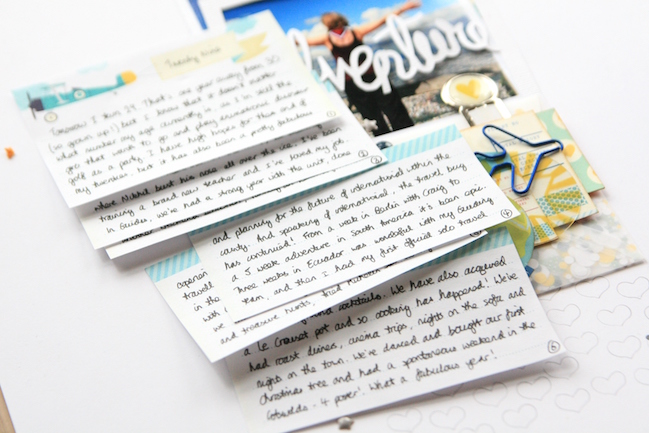 adventure
Twenty nine
Tomorrow I turn 29. That's one year away from 30
(so grown up!) but I know that it doesn't matter
what number my age currently is, as I'm still the
girl that wants to go and play inflatable
golf as a party. I have high hopes for this end of
my twenties, but it has also been a pretty fabulous
1
where Nikhil burst his nose all over the ice. I've been
training a brand new teacher and I've loved my job.
in Guides, we've had a strong year with the unit,
2
3
and planning for the future of international within the
county. And speaking of international, the travel bug
has continued! From a week in Berlin with Craig to
a 5 week adventure in South America it's been epic.
Three weeks in Ecuador was wonderful with my Guiding
team, and then I had my first official solo travel
4
travell
in the
with
and treasure hunts, tried
and cocktails. We have also acquired
a Le Creuset pot and so cooking has happened! We've
had roast dinners, cinema trips, nights on the sofa and
nights on the town. We've danced and bought our first
christmas tree and had a spontaneous weekend in the
Cotswolds - 4 poster! What a fabulous year!
6